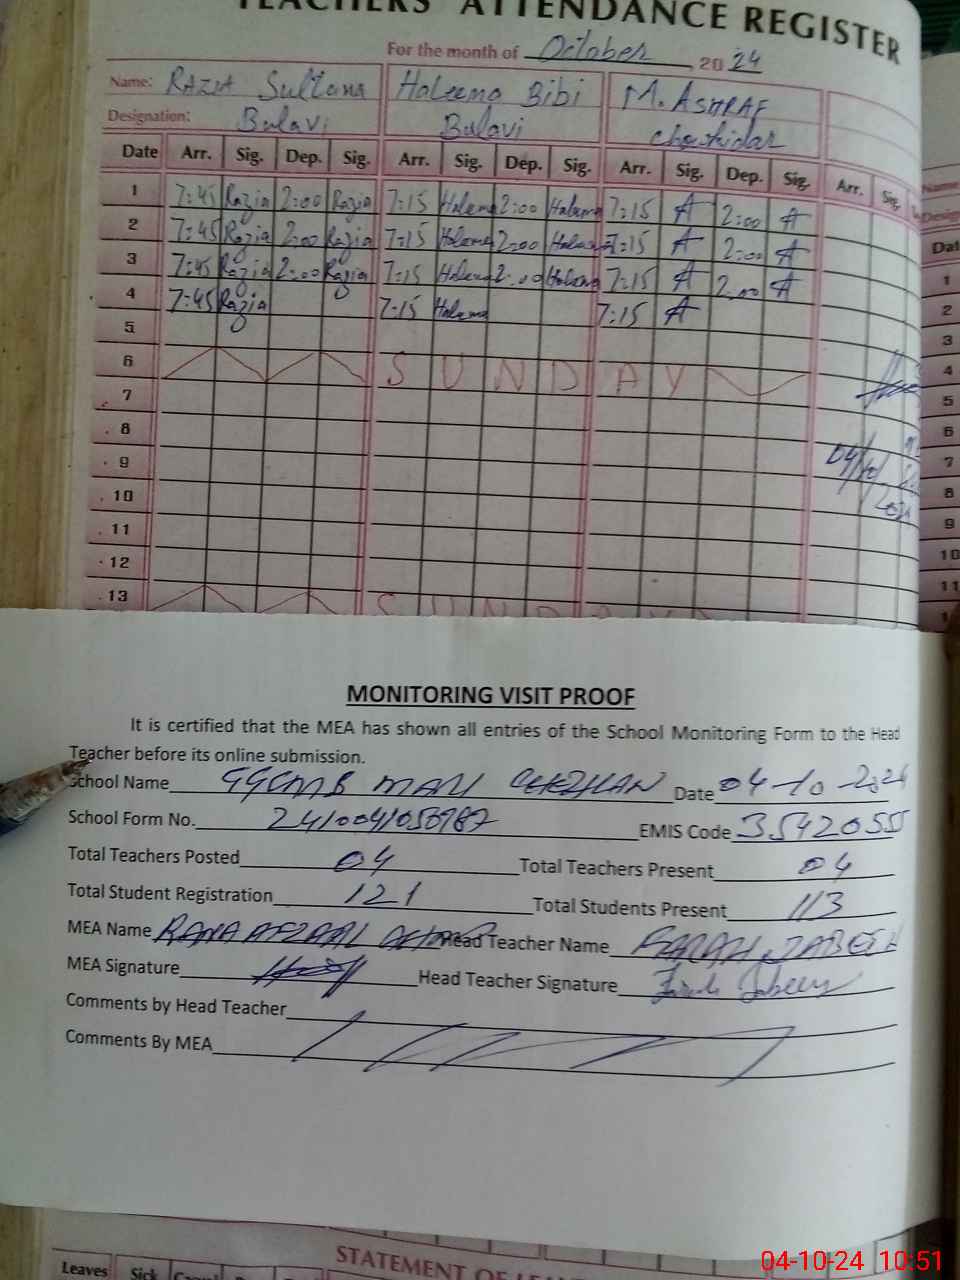 TEACHERS' ATTENDANCE REGISTER
For the month of October, 2024
Name: RAZIA Sultana Haleema Bibi M. ASHRAF
Designation: Bulavi Bulavi Chowkidar
Date Arr. Sig. Dep. Sig. Arr. Sig. Dep. Sig. Arr. Sig. Dep. Sig. Arr. Sig.
1 7:45 Razia 2:00 Razia 7:15 Halema 2:00 Halema 7:15 A 2:00 A
2 7:45 Razia 2:00 Razia 7:15 Halema 2:00 Halema 7:15 A 2:00 A
3 7:45 Razia 2:00 Razia 7:15 Halema 2:00 Halema 7:15 A 2:00 A
4 7:45 Razia 7:15 Halema 7:15 A
5
6 SUNDAY
7
8
9
10
11
12
13 SUNDAY
Name
Desig
Dat
1
2
3
4
5
6
7
8
9
10
11
MONITORING VISIT PROOF
It is certified that the MEA has shown all entries of the School Monitoring Form to the Head
Teacher before its online submission.
School Name Date 04-10-2024
School Form No. EMIS Code 3542055
Total Teachers Posted 04 Total Teachers Present 04
Total Student Registration 121 Total Students Present 113
MEA Name RANA AFZAAL Head Teacher Name FARAH JABEEN
MEA Signature Head Teacher Signature Farah Jabeen
Comments by Head Teacher
Comments By MEA
STATEMENT OF LEA
Leaves Sick
04-10-24 10:51